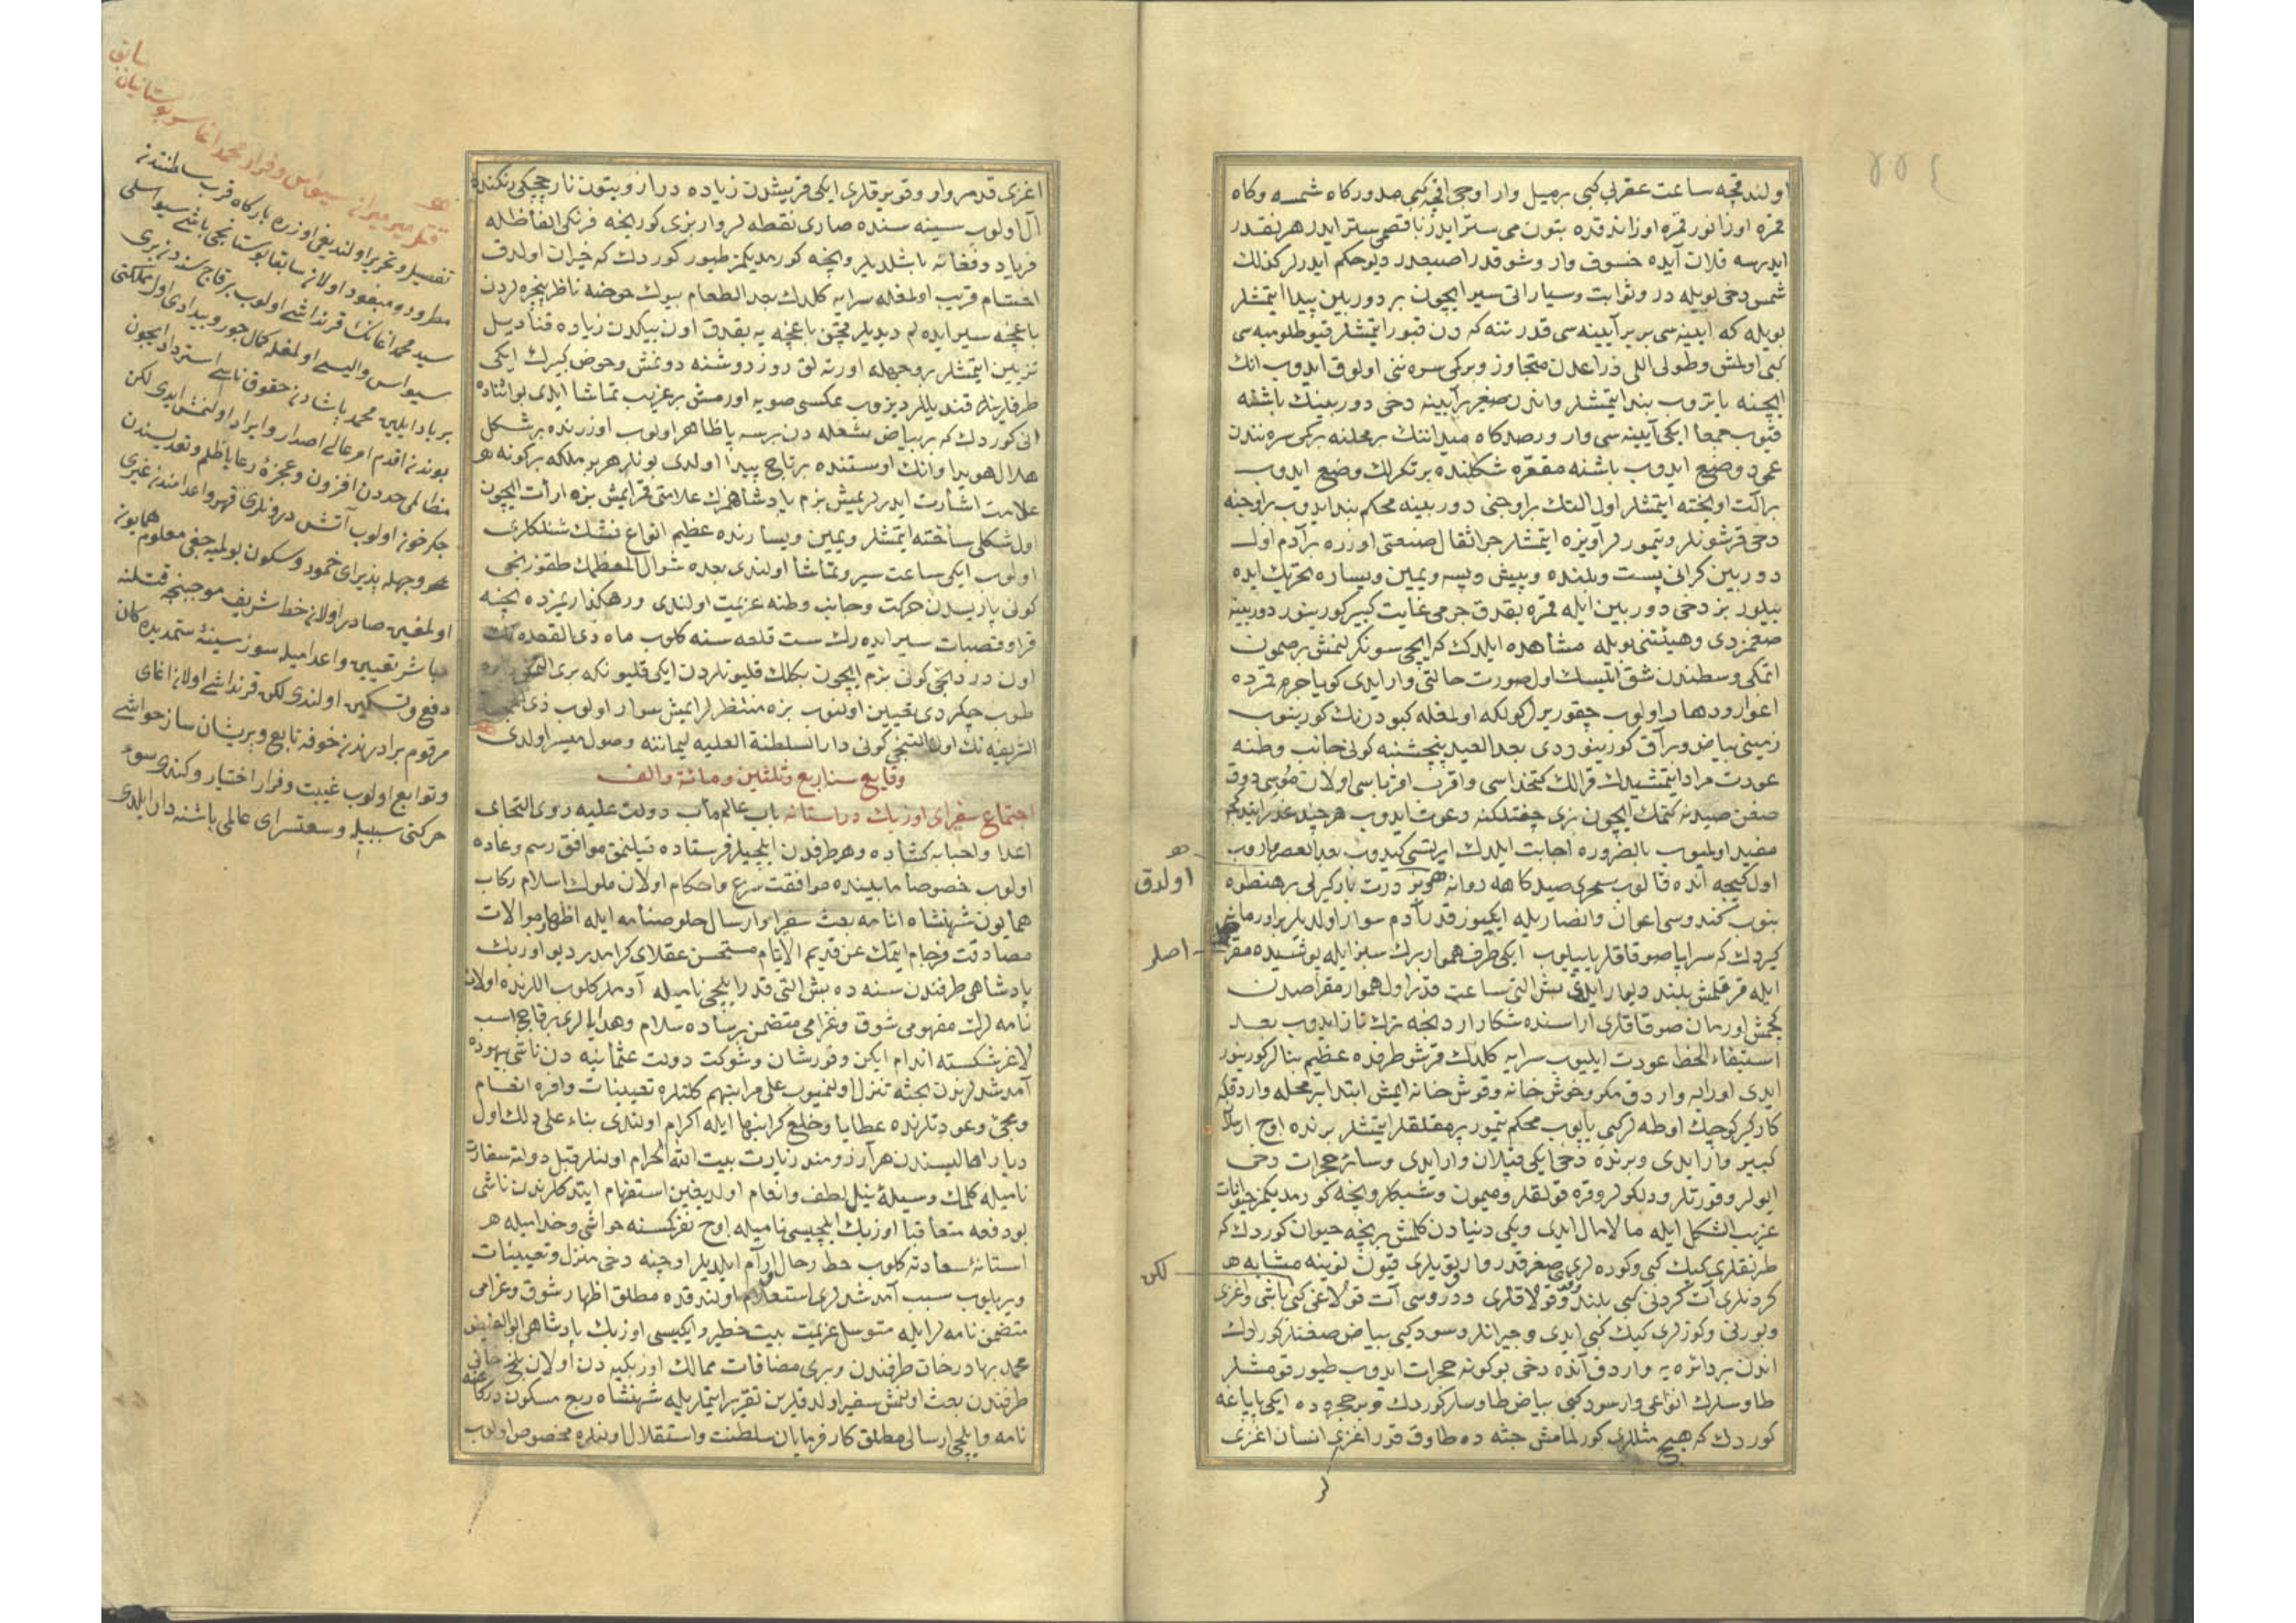 اولندقجه ساعت عقربی کبی بر میل وار اوجی انجه کبی مدور کاه شمسه وکاه
قمره اوزانور قمره اوزاندقده بتون می ستر ایدر ناقص می ستر ایدر هر نقدر
ایدرسه فلان آیده خسوف وار وشوقدر اصبعدر دیو حکم ایدرلر کذلك
شمس دخی بویله در وثوابت وسیاراتی سیر ایچون بر دوربین پیدا ایتمشلر
بویله که آیینه سی بر بر آیینه سی قدر تنه که دن قبور ایتمشلر قیو طلومبه سی
کبی اولمش وطولی اللی ذراعدن متجاوز ویرکی سره ننی اولوق ایدوب انك
ایچنه یاتروب بند ایتمشلر
قیوب جمعا ایکی آیینه سی وار ورصدکاه میداننك بر محلنه برکی سره نندن
عمود وضع ایدوب باشنه مقعره شکلنده بر تکرلك وضع ایدوب
بر آلت اویخته ایتمشلر اول التك بر اوجنی دوربینه محکم بند ایدوب بر اوجنه
دخی قرشونلر وتیمورلر آویزه ایتمشلر جر اثقال صنعتی اوزره بر آدم اول
دوربین کرانی پست وبلنده وپیش وپسه ویمین ویساره تحریك ایده
بیلور بز دخی دوربین ایله قمره بقدق جرمی غایت کبیر کورینور دوربینه
صغمزدی وهیئتنی بویله مشاهده ایلدك که ایچی سونکرلنمش بر صمون
اتمکی وسطندن شق ایتیسك اول صورت حالتی وار ایدی کویا جرم قمرده
اغوار ووهاد اولوب چقور یرلر کولکه اولمغله کبود رنك کورینوب
زمینی بیاض وبراق کورینوردی بعد العید پنجشنبه کونی جانب وطنه
عودت مراد ایتمشیدك قرالك کتخداسی واقرب اقرباسی اولان موسی دوق
صغن صیدنه کتمك ایچون بزی چفتلکنه دعوت ایدوب هر چند عذر ایتدکم
مفید اولمیوب بالضروره اجابت ایلدك ایرتسی کیدوب بعد العصر واروب
اولدق
اول کیجه آنده قالوب سحری صیدکاهه روانه
بنوب کندوسی اعوان وانصاریله ایکیوز قدر آدم سوار اولدیلر بر اورمانه
کیردك که سراپا صوقاقلر یاپیلوب ایکی طرف هموار برك سبز ایله پوشیده مقراض
اصلر
ایله قرقلمش بلند دیوار ایدی بش التی ساعت قدر اول هموار مقراصدن
کچمش اورمان صوقاقلری اراسنده شکار اردنجه ترك تاز ایدوب بعد
استیفاء الحظ عودت ایلیوب سرایه کلدك قرشو طرفده عظیم بنالر کورینور
ایدی اورایه واردق مکر وحوش خانه وقوش خانه ایمش ابتدا بر محله واردق
کارکیر کوچك اوطه لر کبی یاپوب محکم تیمور پرمقلقلر ایتمشلر برنده اوچ ارسلان
کبیر وار ایدی وبرنده دخی ایکی قپلان وار ایدی وسائر حجرات دخی
ایولر وقورتلر ودلکولر وقره قولقلر ومیمون وشبکلر ونیجه کورمدیکمز حیوانات
غریب الشکل ایله مالامال ایدی ویکی دنیادن کلمش بر نیجه حیوان کوردك که
طرنقلری کیك کبی وکوده لری صغر قدر وار توپلری قیون لونینه مشابه
لکن
کردنلری آت کردنی کبی بلند وقولاقلری ودروسی آت قولاغی کبی باشی واغزی
وبورنی وکوزلری کیك کبی ایدی وجیرانلر وسود کبی بیاض صغنلر کوردك
اندن بر دائره یه واردق آنده دخی بوکونه حجرات ایدوب طیور قومشلر
طاوسلرك انواعی وار سود کبی بیاض طاوسلر کوردك وبر حجره ده ایکی پاپاغه
کوردك که هیچ مثللری کورلمامش جثه ده طاوق قدر اغزی انسان اغزی
اغزی قدر وار وقویرقلری ایکی قریشدن زیاده دراز وبتون نار چیچکی رنکنده
آل اولوب سینه سنده صاری نقطه لر وار بزی کورنجه فرنکی الفاظله
فریاد وفغانه باشلدیلر ونیجه کورمدیکمز طیور کوردك که حیران اولدق
اختتام قریب اولمغله سرایه کلدك بعد الطعام بیوك حوضه ناظر پنجره لردن
باغچه سیر ایده لم دیدیلر چقتق باغچه یه بقدق اون بیکدن زیاده قنادیل
تزیین ایتمشلر بر وجهله اورته لق روز روشنه دونمش وحوض کبیرك ایکی
طرفلرینه قندیللر دیزوب عکسی صویه اورمش بر غریب تماشا ایدی بو اثناده
انی کوردك که بر بیاض شعله دن برسه یا ظاهر اولوب اوزرنده بر شکل
هلال هویدا وانك اوستنده بر تاج پیدا اولدی بونلر هر بر ملکه بر کونه
علامت اشارت ایدرلریمش بزم پادشاهمزك علامتی قمر ایمش بزه ارائت ایچون
اول شکلی ساخته ایتمشلر ویمین ویسارنده عظیم انواع نفتك شنلکلری
اولوب ایکی ساعت سیر وتماشا اولندی بعده شوال المعظمك طقوزنجی
کونی پاریسدن حرکت وجانب وطنه عزیمت اولندی ورهکذاریمزده نیجه
قرا وقصبات سیر ایده رك ست قلعه سنه کلوب ماه ذی القعده نك
اون دردنجی کونی بزم ایچون بکلك قلیونلردن ایکی قلیون
طوب چکردی تعیین اولنوب بزه منتظرلرایمش سوار اولوب ذی الحجه
الشریفه نك اون التنجی کونی دار السلطنة العلیه لیماننه وصول میسر اولدی
وقایع سنه اربع وثلثین ومائة والف
اجتماع سفرای اوزبك در آستانه باب عالم مآب دولت علیه روی التجای
اعدا واحبابه کشاده وهر طرفدن ایلچیلر فرستاده قیلنمق موافق رسم وعاده
اولوب خصوصا مابینده موافقت شرع واحکام اولان ملوك اسلام رکاب
همایون شهنشاه انامه بعث سفرا وارسال خلوصنامه ایله اظهار موالات
مصادقت فرجام ایتمك عن قدیم الایام مستحسن عقلای کرامدر دیو اوزبك
پادشاهی طرفندن سنه ده بش التی قدر ایلچی نامیله آدملر کلوب اللرنده اولان
نامه لرك مفهومی شوق وغرامی متضمن بر ساده سلام وهدایالری بر قاچ اسب
لاغر شکسته اندام ایکن وفور شان وشوکت دولت عثمانیه دن ناشی بیهوده
آمد شدلرندن بحثه تنزل اولنمیوب علی مراتبهم کلنلره تعیینات وافره انعام
ومجئ وعودتلرنده عطایا وخلع کرانبها ایله اکرام اولندی بناء علی ذلك اول
دیار اهالیسندن هر آرزومند زیارت بیت الله الحرام اولنلر قبل دولته سفارت
نامیله کلمك وسیلۀ نیل لطف وانعام اولدیغین استفهام ایتدکلرندن ناشی
بو دفعه متعاقبا اوزبك ایلچیسی نامیله اوچ نفر کمسنه حواشی وخدامیله
استانۀ سعادته کلوب حط رحال آرام ایلدیلر اوچنه دخی منزل وتعیینات
ویریلوب سبب آمد شدلری استعلام اولندقده مطلق اظهار شوق وغرامی
متضمن نامه لر ایله متوسل عزیمت بیت خطیر وایکیسی اوزبك پادشاهی ابو الفیض
محمد بهادر خان طرفندن وبری مضافات ممالك اوزبکیه دن اولان بلخ خانی
طرفندن بعث اولنمش سفیر اولدقلرین تقریر ایتملریله شهنشاه ربع مسکون درکاهنه
نامه وایلچی ارسالی مطلق کارفرمایان سلطنت واستقلال اولنلره مخصوص اولوب
قتل میرمیران سیواس وفرار محمد اغا سر بوستانیان سابق
تفصیل وتحریر اولندیغی اوزره بارکاه قرب سلطنتدن
مطرود ومبعود اولان سابقا بوستانجی باشی سیواسلی
سید محمد اغانك قرنداشی اولوب بر قاچ سنه دنبری
سیواس والیسی اولمغله کمال جور وبیدادی اول مملکتی
بر باد ایلین محمد پاشادن حقوق ناسی استرداد ایچون
بوندن اقدم امر عالی اصدار وایراد اولنمش ایدی لکن
مظالمی حددن افزون وعجزۀ رعایا ظلم وتعدیسندن
جکرخون اولوب آتش درونلری قهر واعدامندن غیری
بر وجهله پذیرای خمود وسکون بولمیه جغی معلوم همایون
اولمغین صادر اولان خط شریف موجبنجه قتلنه
مباشر تعیین واعدامیله سوز سینۀ ستمدیده کان
دفع وتسکین اولندی لکن قرنداشی اولان اغای
مرقوم برادرندن خوفه تابع وپریشان ساز حواشی
وتوابع اولوب غیبت وفرار اختیار وکندی سوء
حرکتی سببیله وسعتسرای عالمی باشنه دار ایلدی